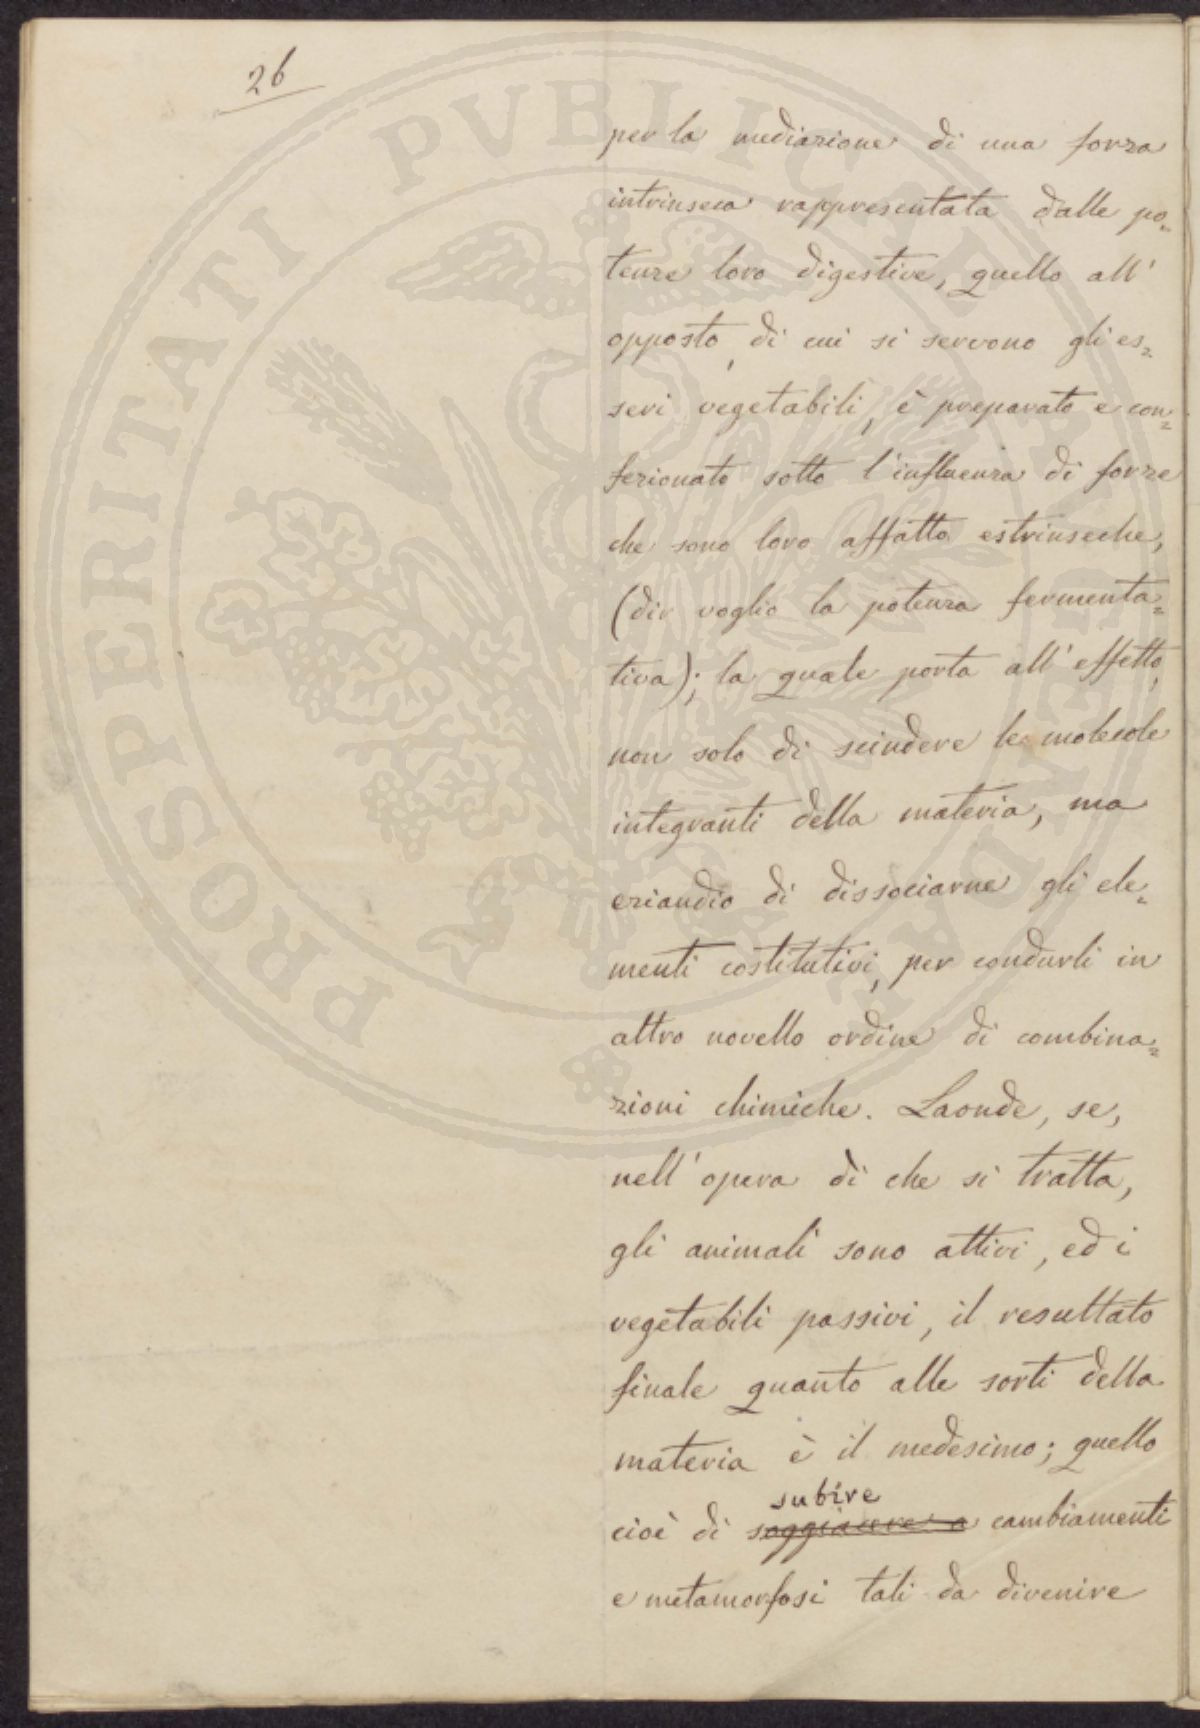 26
per la mediazione di una forza
intrinseca rappresentata dalle po=
tenze loro digestive, quello all'
opposto, di cui si servono gli es=
seri vegetabili, è preparato e con=
fezionato sotto l'influenza di forze
che sono loro affatto estrinseche,
(dir voglio la potenza fermenta=
tiva); la quale porta all'effetto,
non solo di scindere le molecole
integranti della materia, ma
eziandio di dissociarne gli ele=
menti costitutivi, per condurli in
altro novello ordine di combina=
zioni chimiche. Laonde, se,
nell'opera di che si tratta,
gli animali sono attivi, ed i
vegetabili passivi, il resultato
finale quanto alle sorti della
materia è il medesimo; quello
subire
cioè di soggiacere a cambiamenti
e metamorfosi tali da divenire
PROSPERITATI PVBLICAE AVGENDAE